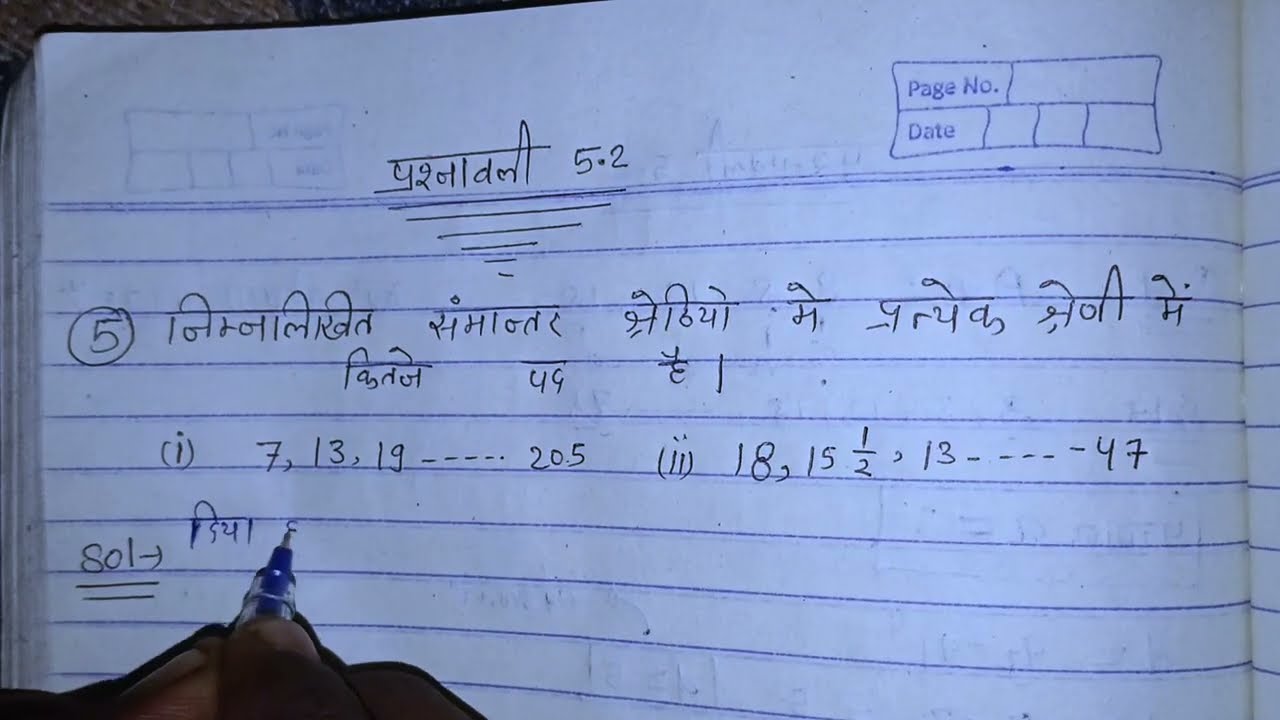 Page No.
Date
प्रश्नावली 5.2
5 निम्नलिखित संमान्तर श्रेढियो मे प्रत्येक श्रेणी में
कितने पद है।
(i) 7, 13, 19 ------ 205 (ii) 18, 15 1/2, 13 - ---- -47
Sol→ दिया